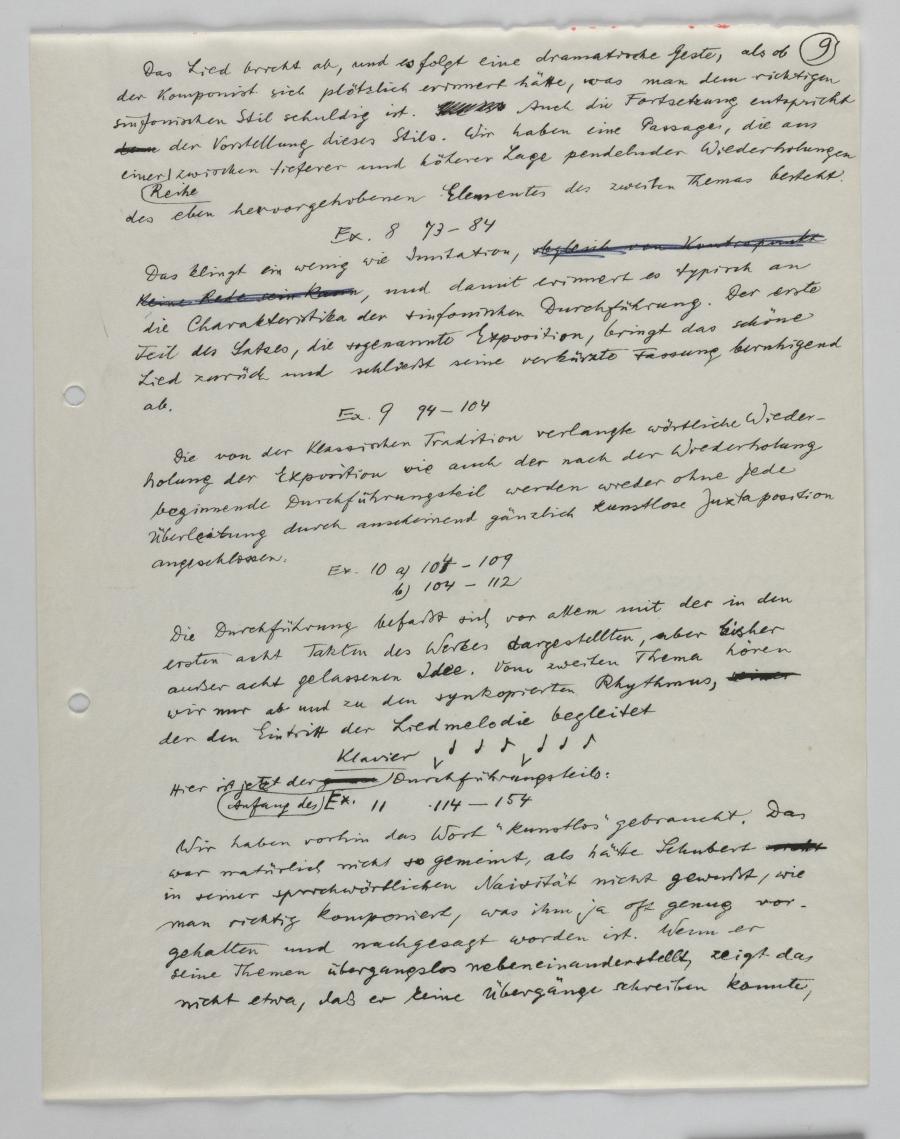 9
Das Lied bricht ab, und es folgt eine dramatische Geste, als ob
der Komponist sich plötzlich erinnert hätte, was man dem richtigen
sinfonischen Stil schuldig ist. Auch die Fortsetzung entspricht
der Vorstellung dieses Stils. Wir haben eine Passage, die aus
einer zwischen tieferer und höherer Lage pendelnder Wiederholungen
Reihe
des eben hervorgehobenen Elementes des zweiten Themas besteht.
Ex. 8 73-84
Das klingt ein wenig wie Imitation, obgleich von Kontrapunkt
keine Rede sein kann, und damit erinnert es typisch an
die Charakteristika der sinfonischen Durchführung. Der erste
Teil des Satzes, die sogenannte Exposition, bringt das schöne
Lied zurück und schließt seine verkürzte Fassung beruhigend
ab.
Ex. 9 94-104
Die von der klassischen Tradition verlangte wörtliche Wieder-
holung der Exposition wie auch der nach der Wiederholung
beginnende Durchführungsteil werden wieder ohne jede
Überleitung durch anscheinend gänzlich kunstlose Juxtaposition
angeschlossen.
Ex. 10 a) 104-109
b) 104-112
Die Durchführung befaßt sich vor allem mit der in den
ersten acht Takten des Werkes dargestellten, aber bisher
außer acht gelassenen Idee. Vom zweiten Thema hören
wir nur ab und zu den synkopierten Rhythmus, seiner
der den Eintritt der Liedmelodie begleitet
Klavier
Hier ist jetzt der Durchführungsteils:
Anfang des Ex. 11 114-154
Wir haben vorhin das Wort "kunstlos" gebraucht. Das
war natürlich nicht so gemeint, als hätte Schubert nicht
in seiner sprichwörtlichen Naivität nicht gewußt, wie
man richtig komponiert, was ihm ja oft genug vor-
gehalten und nachgesagt worden ist. Wenn er
seine Themen übergangslos nebeneinanderstellt, zeigt das
nicht etwa, daß er keine Übergänge schreiben konnte,